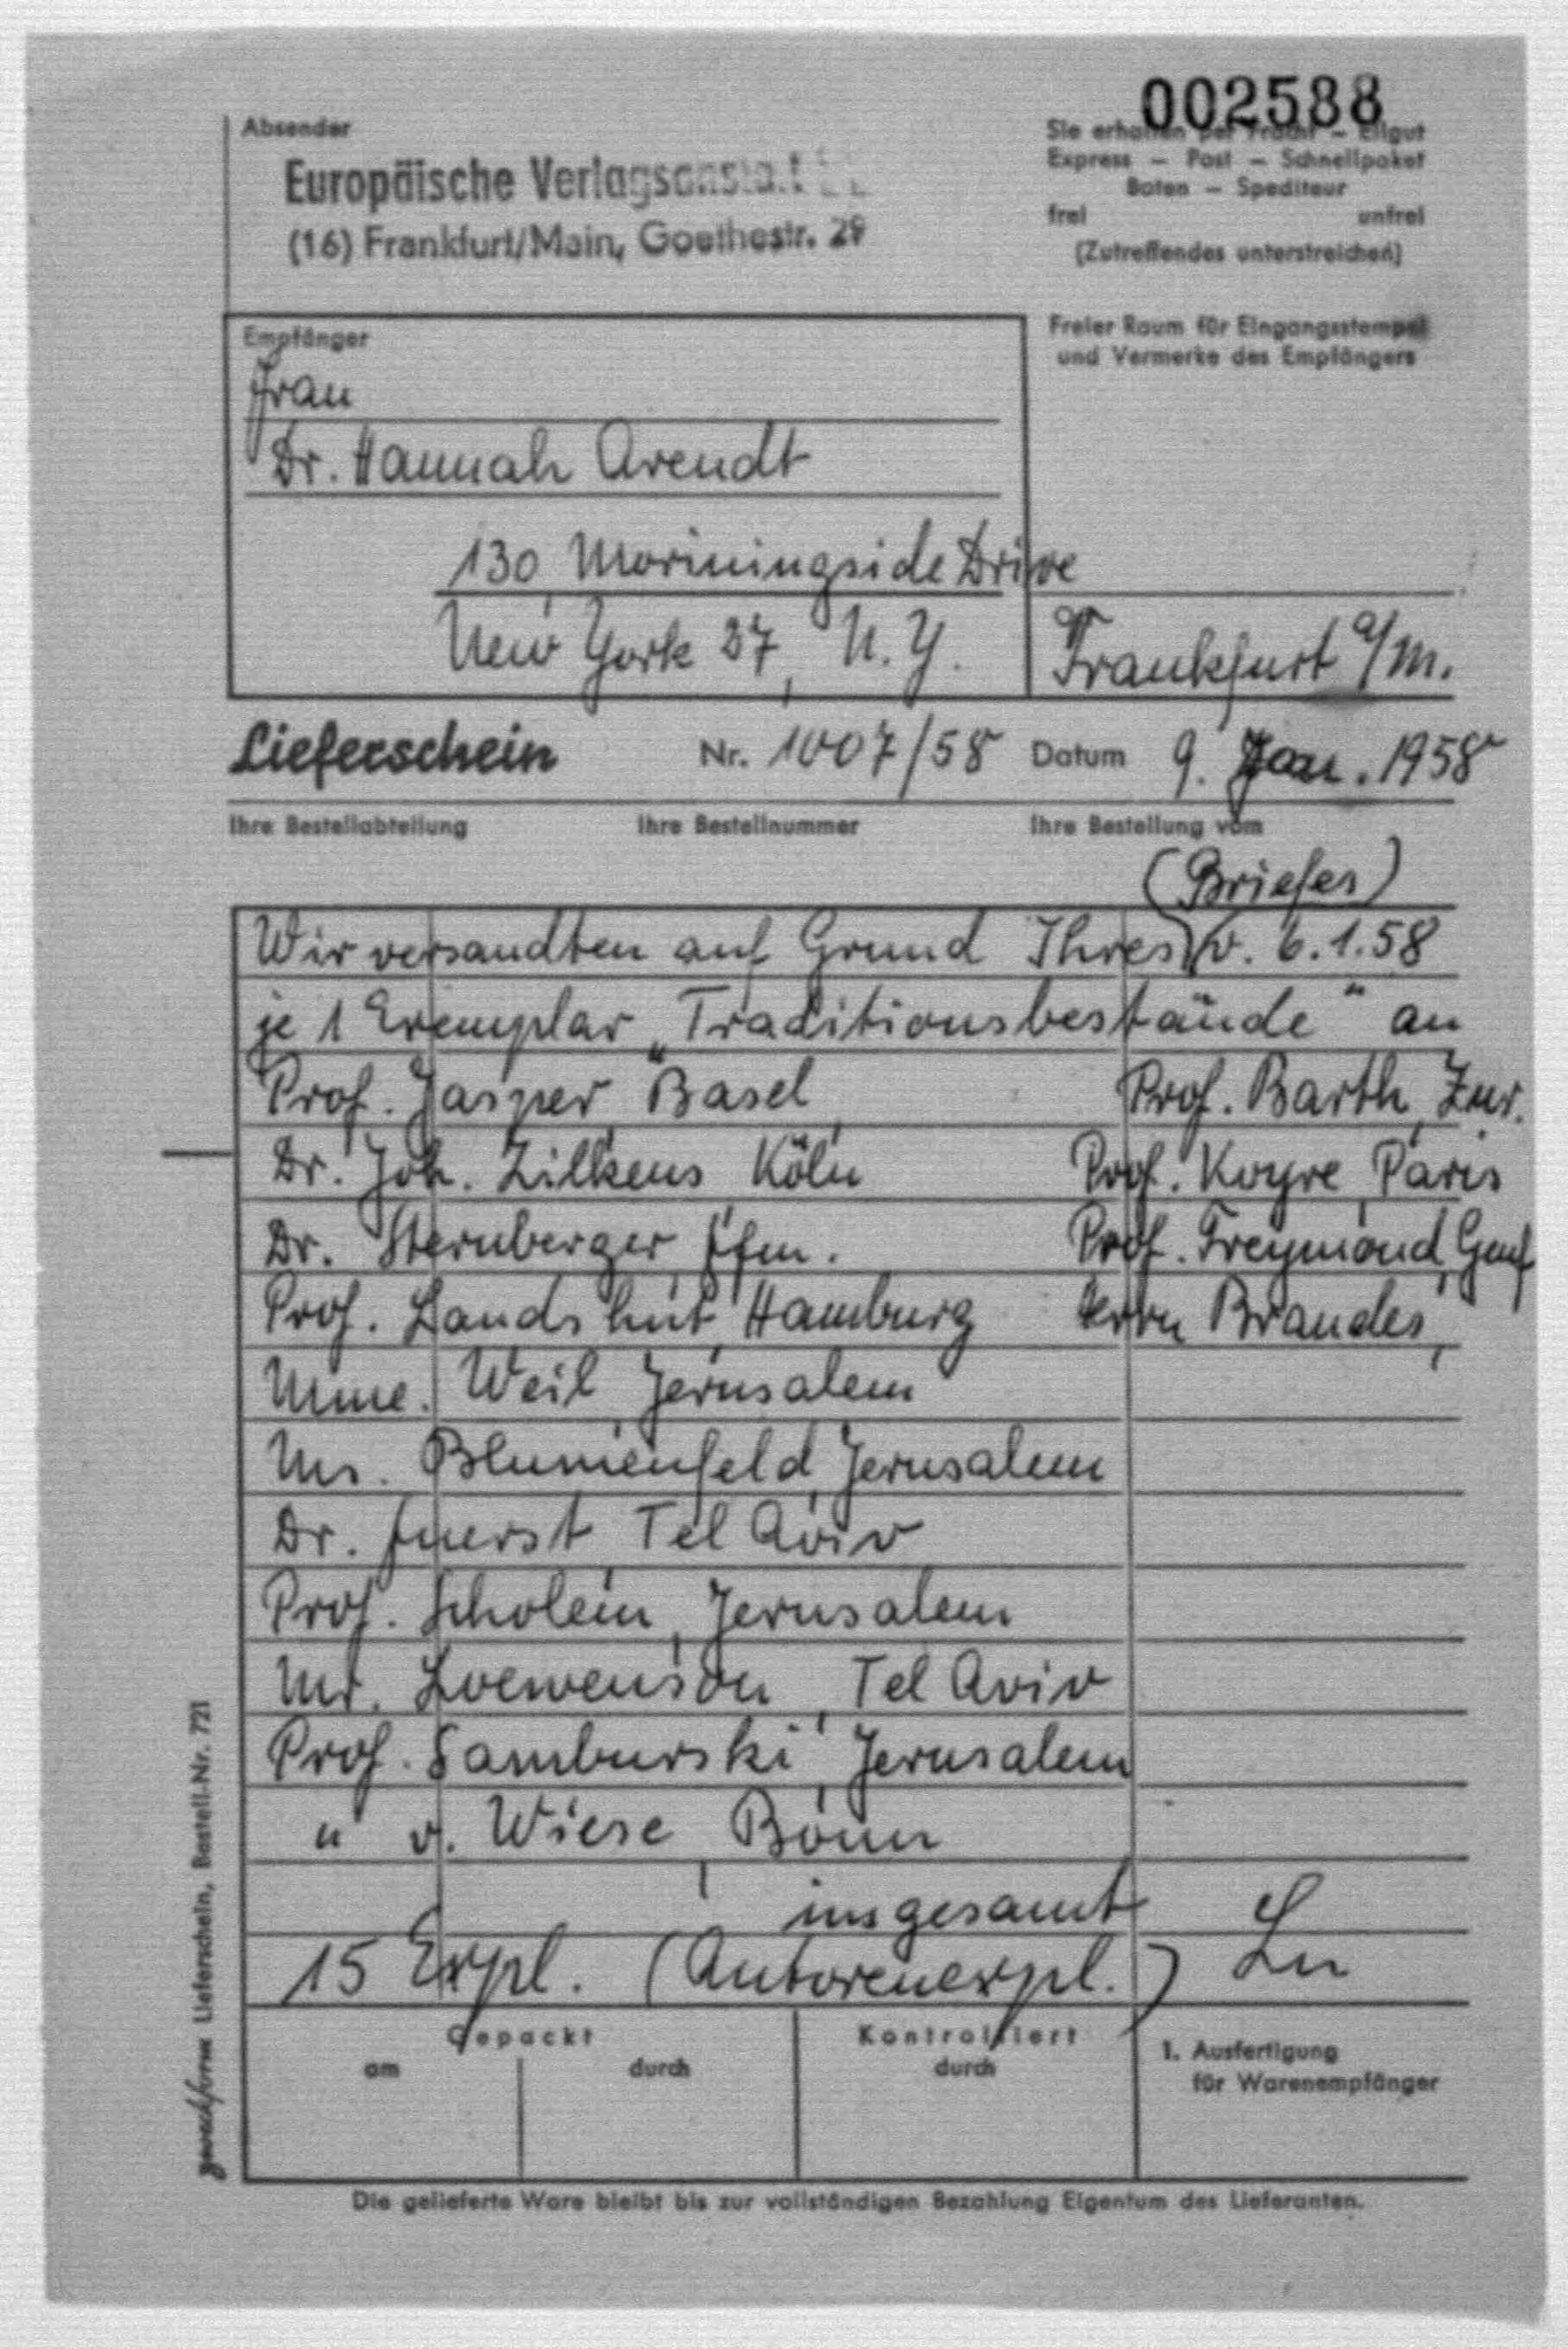 002588
Absender
Europäische Verlagsanstalt
(16) Frankfurt/Main, Goethestr. 29
Sie erhalten per Fracht – Eilgut
Express – Post – Schnellpaket
Boten – Spediteur
frei unfrei
(Zutreffendes unterstreichen)
Empfänger
Frau
Dr. Hannah Arendt
130 Morningside Drive
New York 27, N.Y.
Freier Raum für Eingangsstempel
und Vermerke des Empfängers
Frankfurt a/M.
Lieferschein Nr. 1007/58 Datum 9. Jan. 1958
Ihre Bestellabteilung Ihre Bestellnummer Ihre Bestellung vom
(Briefes)
Wir versandten auf Grund Ihres v. 6.1.58
je 1 Exemplar „Traditionsbestände" an
Prof. Jasper, Basel, Prof. Barth, Zür.
Dr. Joh. Zilkens Köln Prof. Koyre, Paris
Dr. Sternberger, Ffm. Prof. Freymond, Genf
Prof. Landshut, Hamburg Herrn Brandes,
Mme. Weil, Jerusalem
Mr. Blumenfeld, Jerusalem
Dr. Fuerst, Tel Aviv
Prof. Scholem, Jerusalem
Mr. Loewenson, Tel Aviv
Prof. Samburski, Jerusalem
" v. Wiese, Bonn
insgesamt
15 Expl. (Autorenexpl.) Lu
Gepackt Kontrolliert
am durch durch
1. Ausfertigung
für Warenempfänger
Die gelieferte Ware bleibt bis zur vollständigen Bezahlung Eigentum des Lieferanten.
zweckform Lieferschein, Bestell-Nr. 721